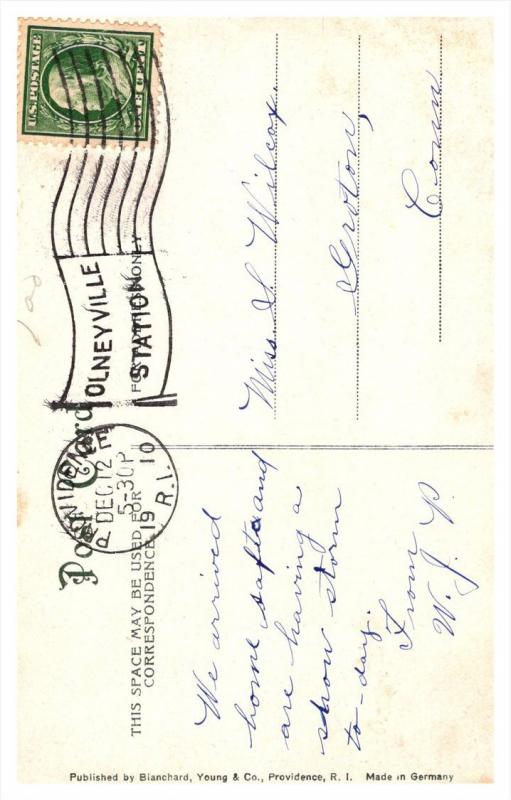 Post Card
THIS SPACE MAY BE USED FOR
CORRESPONDENCE
FOR ADDRESS ONLY
U.S. POSTAGE
PROVIDENCE
DEC 12
5-30P
1910
R.I.
OLNEYVILLE
STATION
We arrived
home safts and
are having a
show storm
to-day.
From
W. J. P.
Miss S Wilcox.
Groton,
Conn
Published by Blanchard, Young & Co., Providence, R. I. Made in Germany